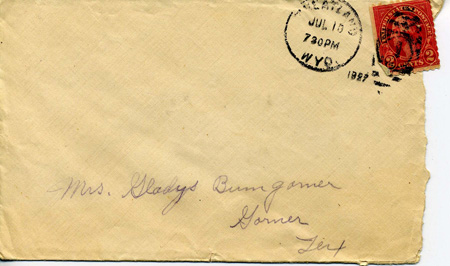 WHEATLAND
JUL 15
730PM
WYO.
1927
UNITED STATES POSTAGE
2 CENTS 2
Mrs. Gladys Bumgarner
Garner
Tex